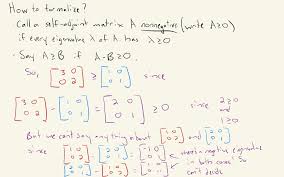 How to formalize?
Call a self-adjoint matrix A nonnegative (write A≥0)
if every eigenvalue λ of A has λ≥0
• Say A≥B if A-B≥0.
So, [3 0; 0 2] ≥ [1 0; 0 1] since
[3 0; 0 2] - [1 0; 0 1] = [2 0; 0 1] ≥ 0 since 2≥0 and 1≥0
But we can't say anything about and
since
there's a negative eigenvalue
in both cases! So
can't decide.